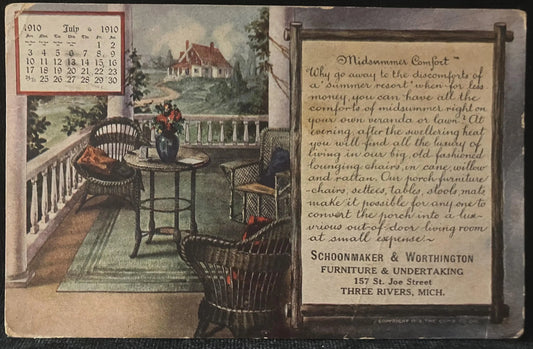 1910 July 6 1910
1 2
3 4 5 6 7 8 9
10 11 12 13 14 15 16
17 18 19 20 21 22 23
25 26 27 28 29 30
Midsummer Comfort
"Why go away to the discomforts of
a "summer resort" when for less
money you can have all the
comforts of midsummer right on
your own veranda or lawn? At
evening, after the sweltering heat
you will find all the luxury of
living in our big, old fashioned
lounging chairs, in cane, willow
and rattan. Our porch furniture
-chairs, settees, tables, stools, mats
make it possible for any one to
convert the porch into a lux-
urious out-of-door living room
at small expense~
SCHOONMAKER & WORTHINGTON
FURNITURE & UNDERTAKING
157 St. Joe Street
THREE RIVERS, MICH.
COPYRIGHT